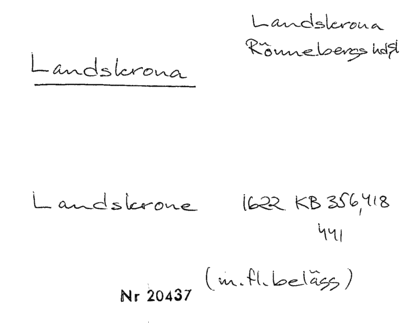 Landskrona
Rönnebergs hdst
Landskrona
Landskrone 1622 KB 356, 418
441
(m.fl.belägg)
Nr 20437